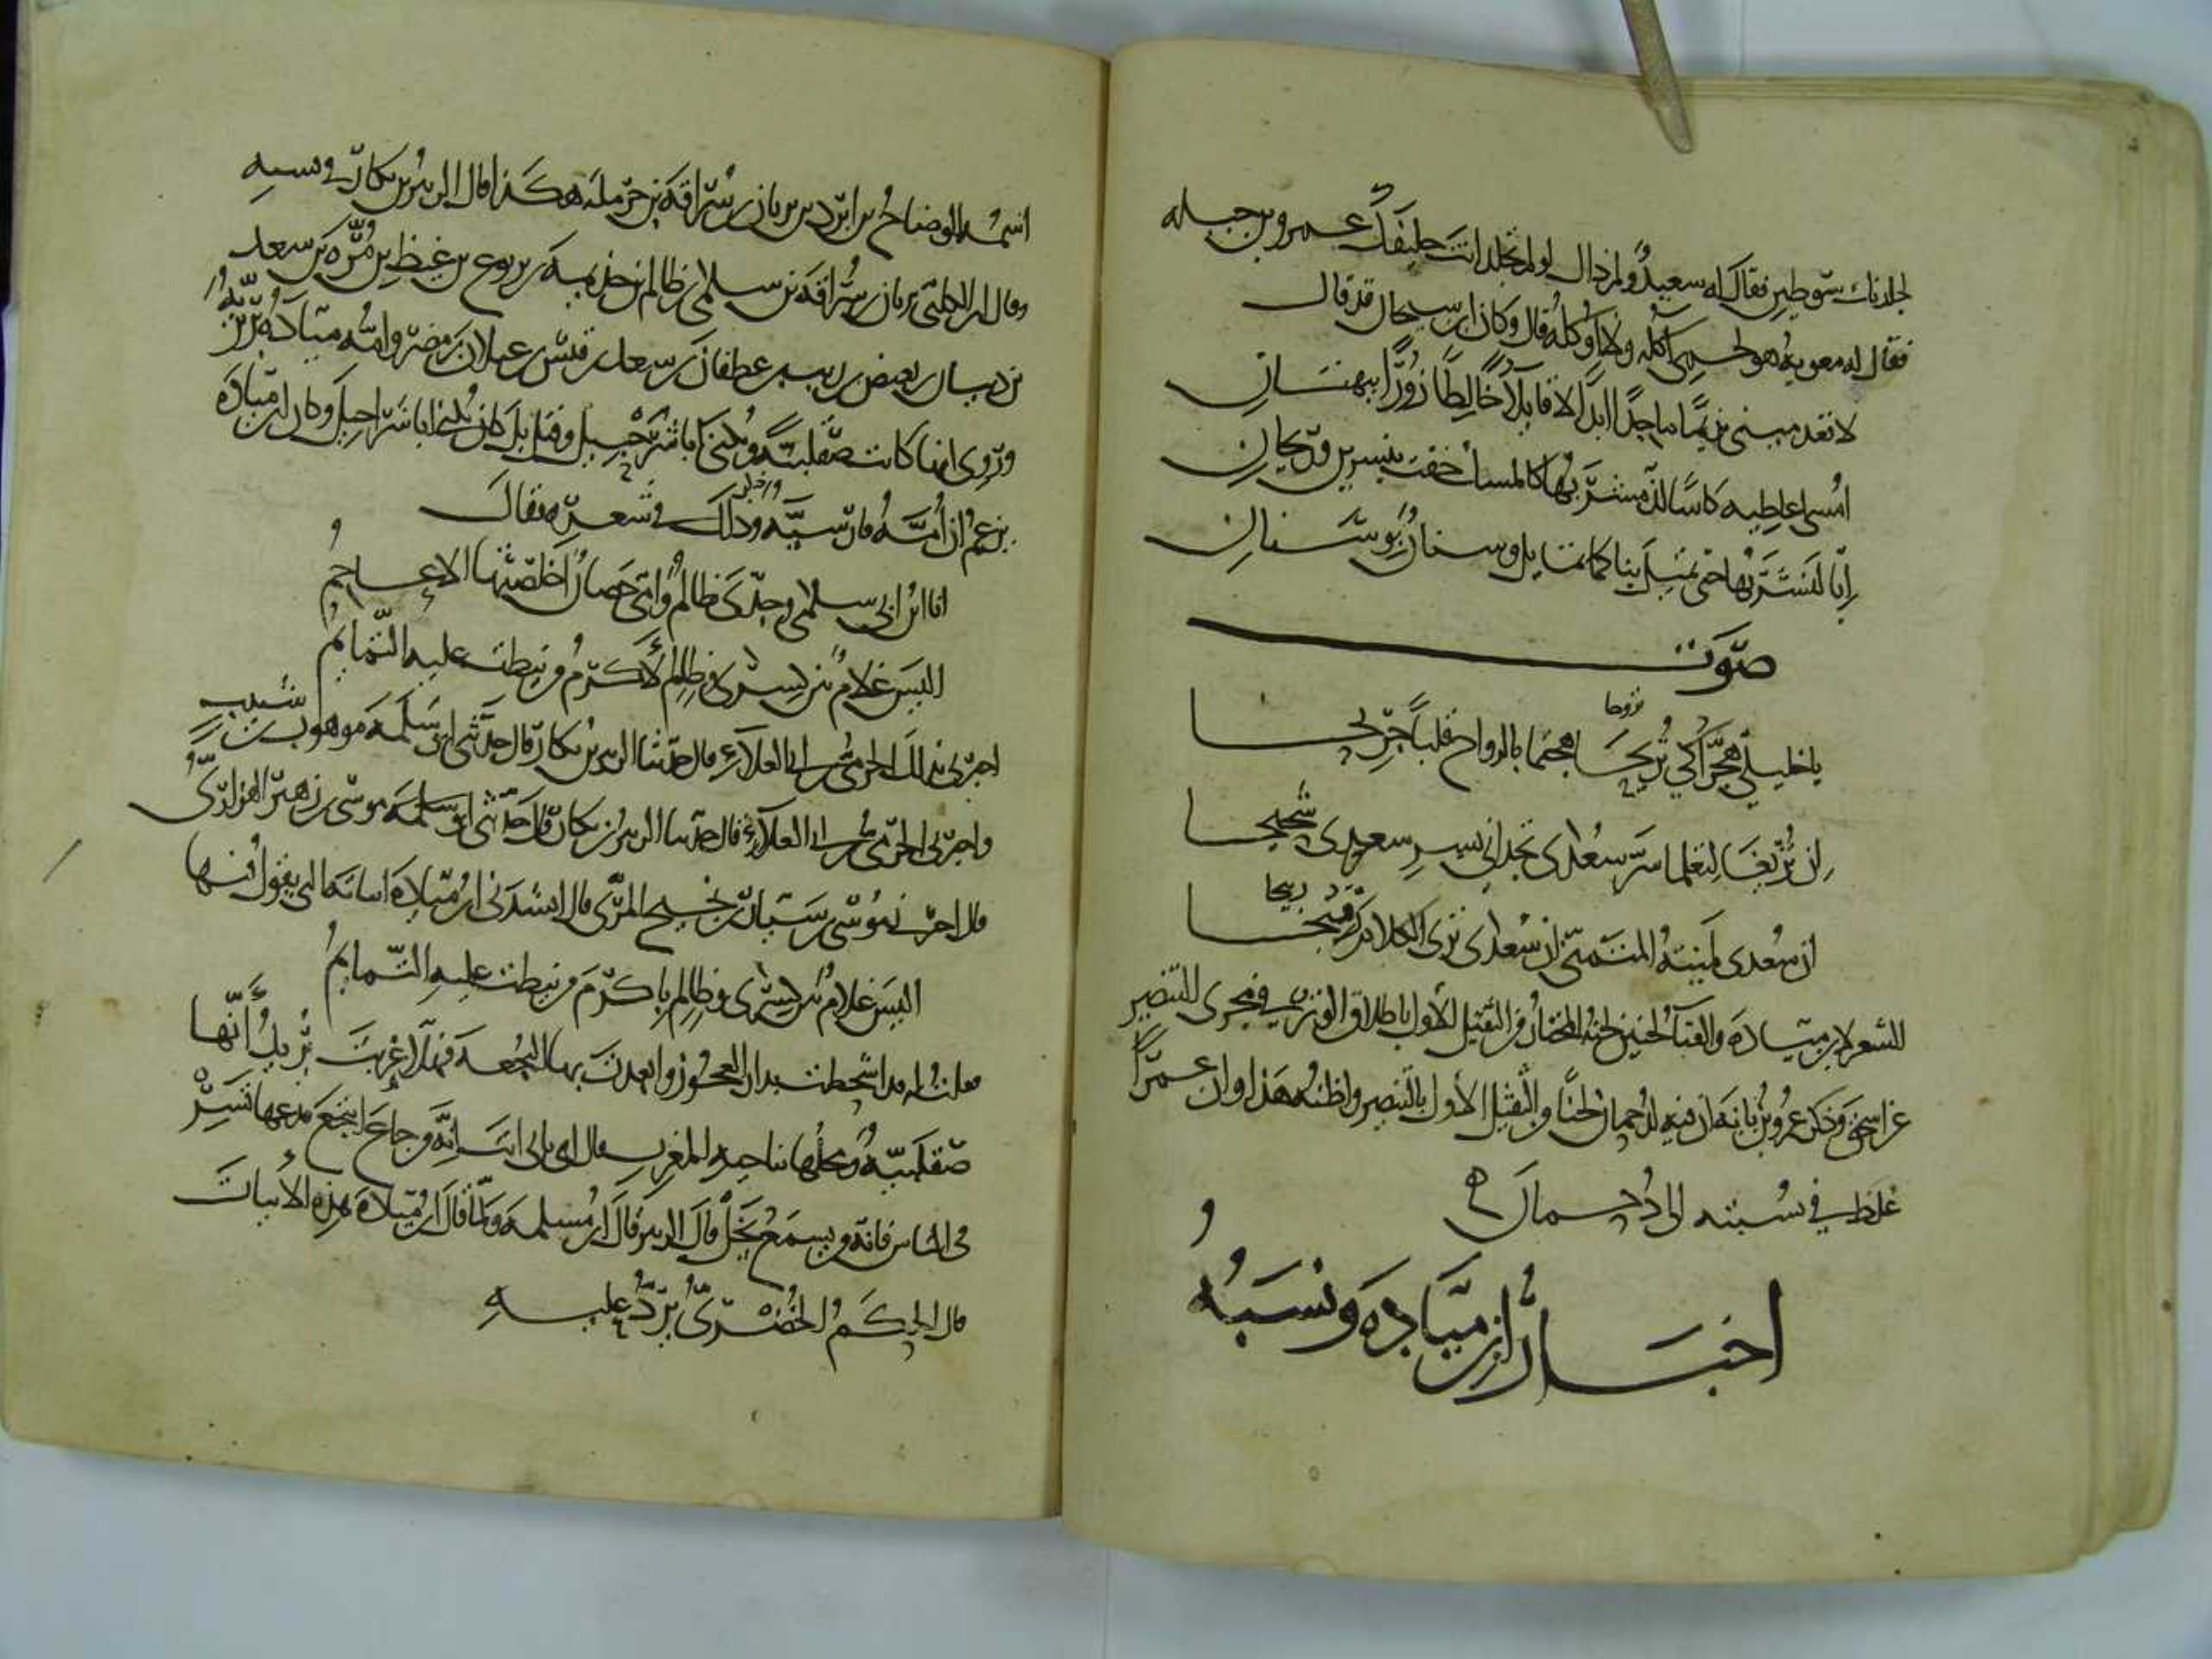 لجلدناك سوطين فقال له سعيد ولم ذاك لو لم تجلد انت حليفك عمرو بن جبله
فقال له معويه هو لحمي آكله ولا اوكله قال وكان ابن سيحان قد قال
لا تعدمينى نديما ماجدا ابدا لا قايلا خالطا زورا ببهتان
امسى اعاطيه كاسا لذ مشربها كالمسك حفت بنسرين وريحان
انا لنشربها حتى تميل بنا كما تمايل وسنان بوسنان
صوت
يا خليلي هجرا كي تريحا هجتما بالرواح قلبا جريحا
تروحا
ان تريغا لتعلما سر سعدى تجداني بسر سعدى شحيحا
ان سعدى لمنية المتمني ان سعدى ترى الكلام قبيحا
ربيحا
الشعر لابن ميادة والغنآ لحنين لحنه المختار من الثقيل الاول باطلاق الوتر في مجرى البنصر
عن اسحق وذكر عمرو بن بانة ان فيه لدحمان لحنا من الثقيل الاول بالبنصر واظنه هذا وان عمرا
غلط في نسبته الى دحمان
اخبار ابن ميادة ونسبه
اسمه الرماح بن ابرد بن ثريان بن سراقة بن حرملة هكذا قال الزبير بن بكار في نسبه
وقال ابن الكلبي ثريان بن سراقة بن سلمى بن ظالم بن جذيمة بن يربوع بن غيظ بن مرة بن سعد
بن ذبيان بن بغيض بن ريث بن غطفان بن سعد بن قيس بن عيلان بن مضر وامه ميادة بربرية
وروى انها كانت صقلبية ويكنى ابا شرحبيل وقيل بل كان يكنى ابا شراحيل وكان ابن ميادة
يزعم ان امه فارسية وذكر ذلك في شعره فقال
انا ابن ابي سلمى وجدي ظالم وامي حصان اخلصتها الاعاجم
اليس غلام بين كسرى وظالم لاكرم من نيطت عليه التمايم
اخبرني بذلك الحرمي بن ابي العلآء قال حدثنا الزبير بن بكار قال حدثني ابو سلمة موهوب بن شبيب
واخبرني الحرمي بن ابي العلآء قال حدثنا الزبير بن بكار قال حدثني ابو سلمة موسى بن زهير الفزاري
قال اخبرني موسى بن سيار بن نجيح المزني قال انشدني ابن ميادة ابياته التي يقول فيها
اليس غلام بين كسرى وظالم باكرم من نيطت عليه التمايم
فقلت له لقد اشحطت بدار العجوز وابعدت بها النجعة فهلا غربت يريد انها
صقلبية ومحلها بناحية المغرب فقال اي بابي انت انه من جاع انتجع فدعها تسر
في الناس فانه من يسمع يخل قال الزبير قال ابن مسلمة ولما قال ابن ميادة هذه الابيات
قال الحكم الخضري يرد عليه